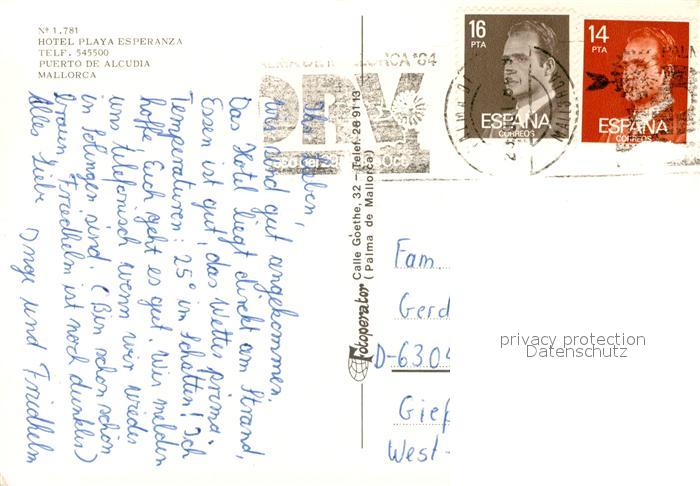 Nº 1.781
HOTEL PLAYA ESPERANZA
TELF. 545500
PUERTO DE ALCUDIA
MALLORCA
Ihr Lieben,
wir sind gut angekommen.
Das Hotel liegt direkt am Strand,
Essen ist gut, das Wetter prima.
Temperaturen: 25° im Schatten! Ich
hoffe Euch geht es gut. Wir melden
uns telefonisch wenn wir wieder
in Solingen sind. (Bin schon schön
braun, Friedhelm ist noch dunkler)
Alles Liebe Inge und Friedhelm
Fotoperator Calle Goethe, 32 - Telef. 28 91 13
(Palma de Mallorca)
16
PTA
ESPAÑA
CORREOS
14
PTA
ESPAÑA
CORREOS
MALLORCA '84
DRV
PALMA
Fam.
Gerd
D-6304
Gieß
West-
privacy protection
Datenschutz